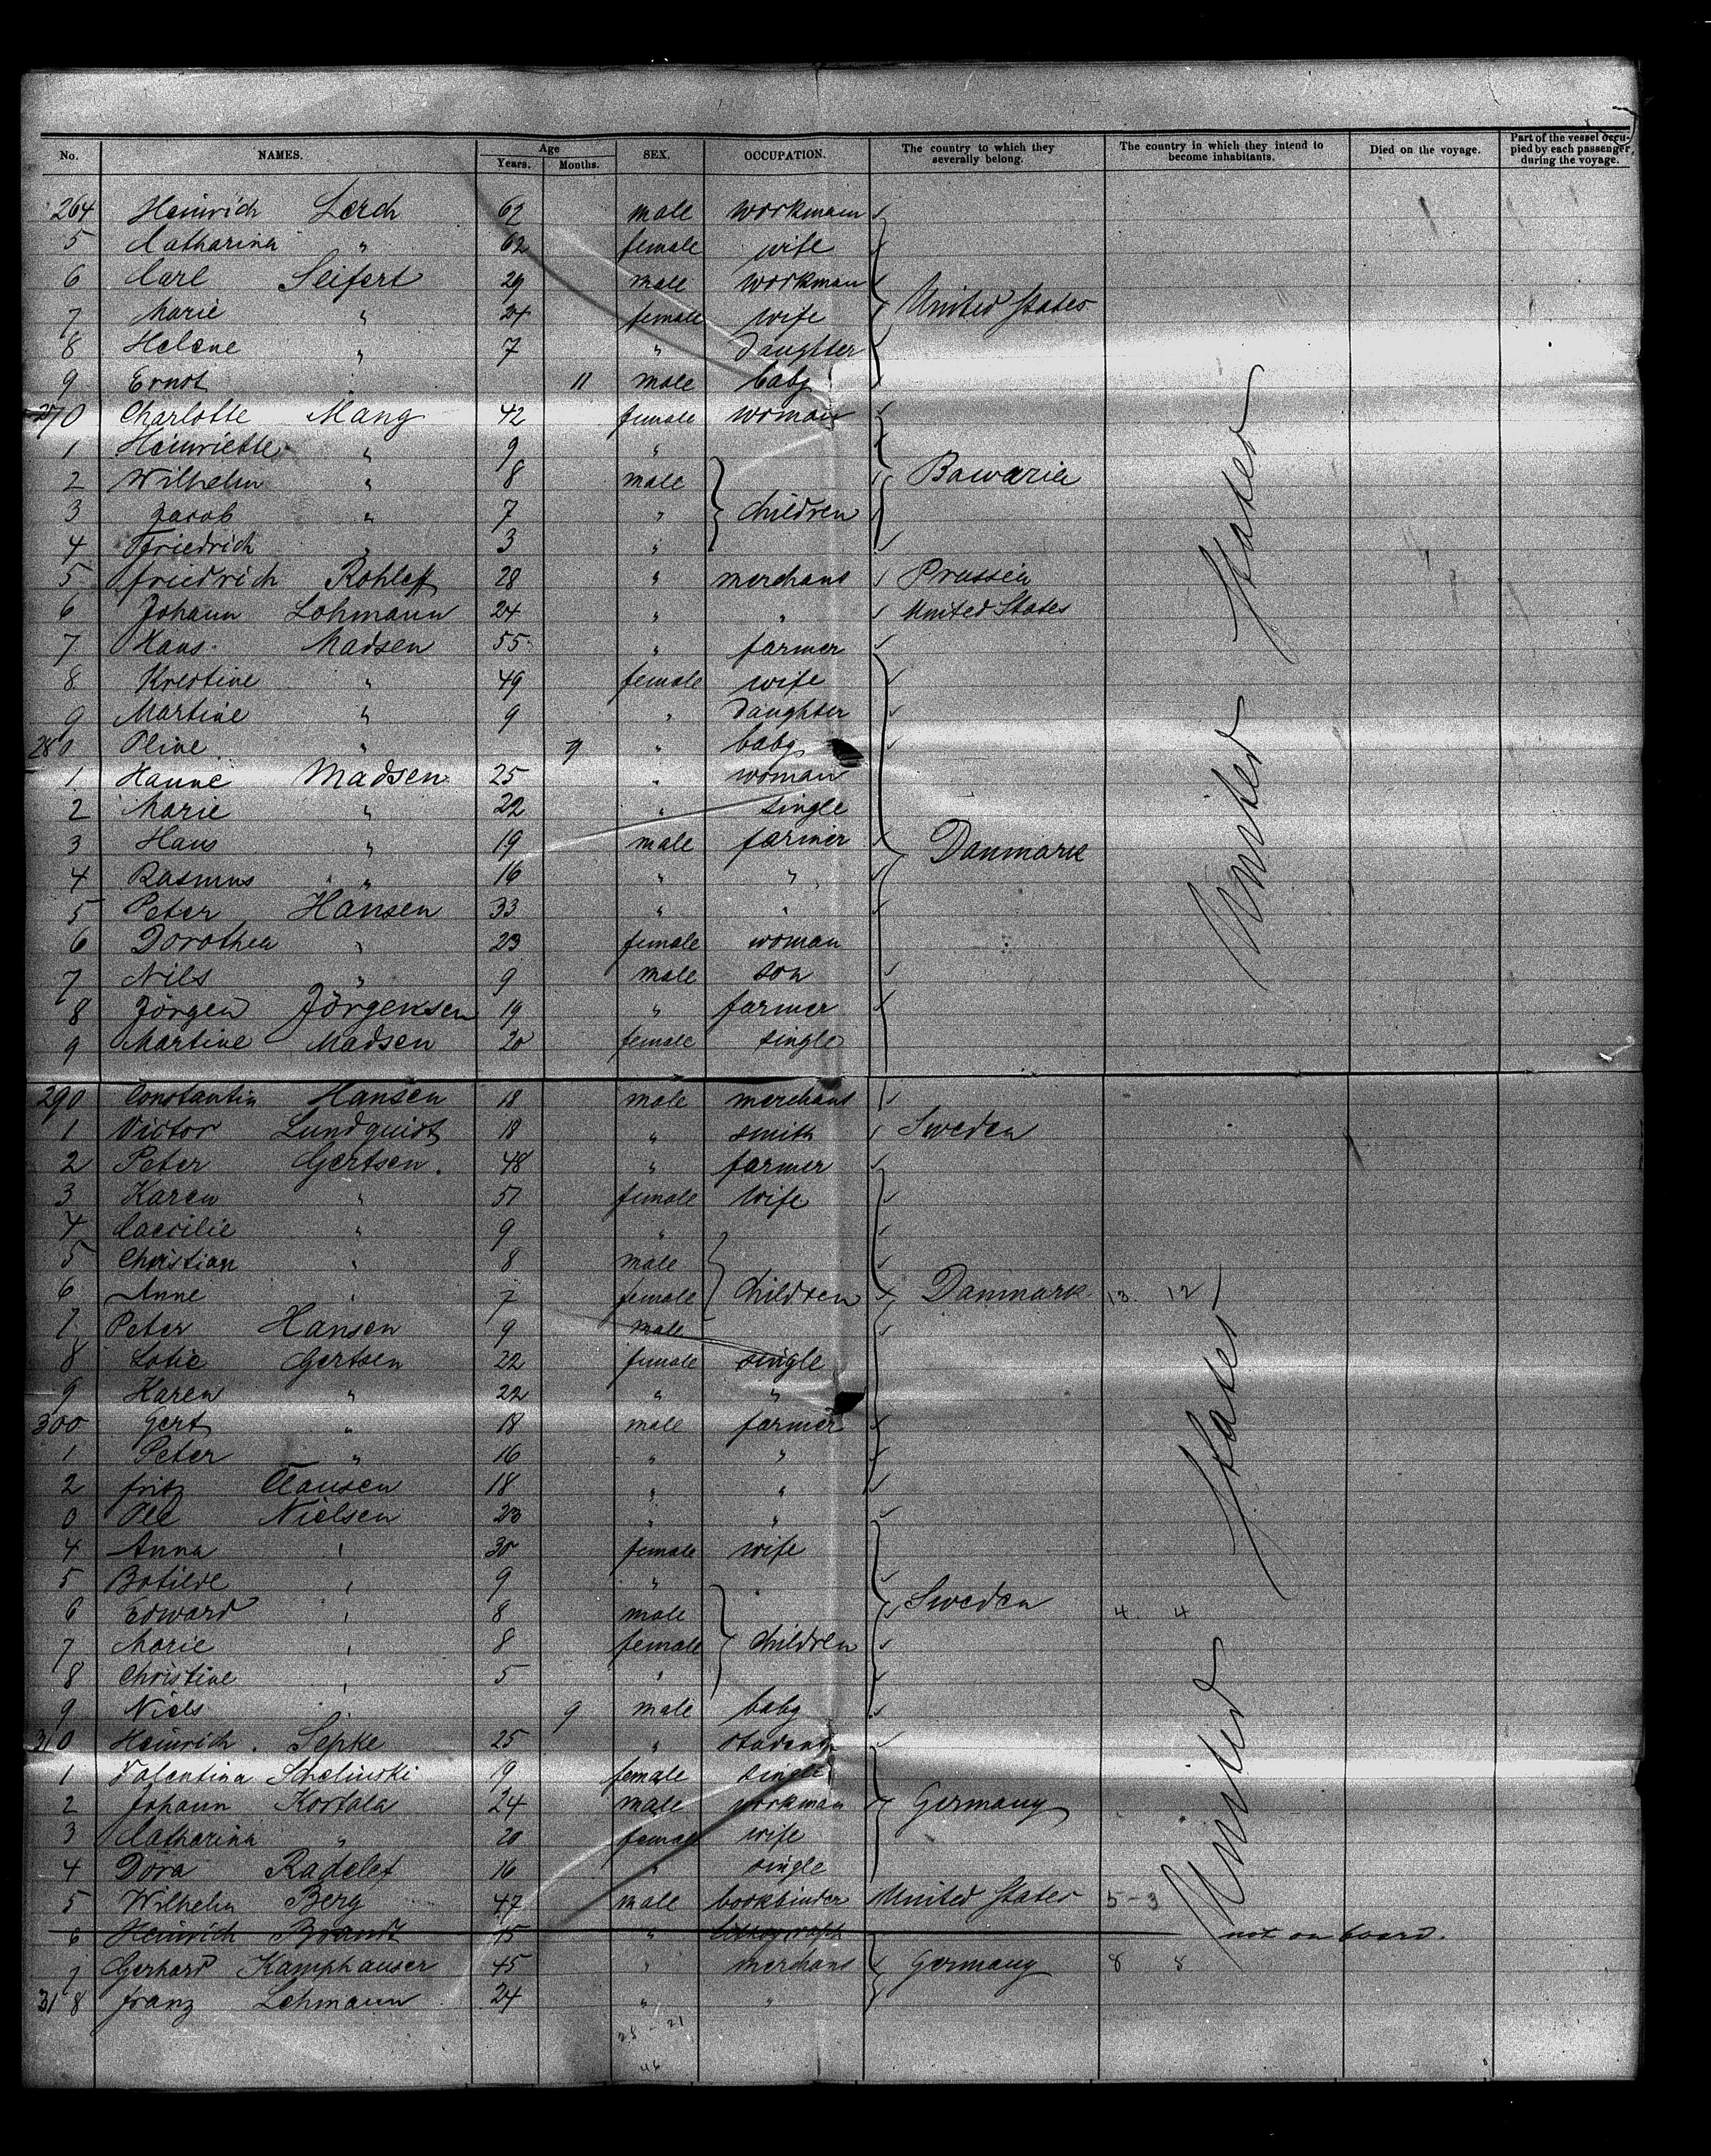 No. NAMES. Age Years. Months. SEX. OCCUPATION. The country to which they severally belong. The country in which they intend to become inhabitants. Died on the voyage. Part of the vessel occupied by each passenger during the voyage.
264 Heinrich Lerch 62 male workman
5 Catharina " 62 female wife
6 Carl Seifert 29 male workman
7 Marie " 24 female wife United States
8 Helene " 7 " daughter
9 Ernst " 11 male baby
270 Charlotte Mang 42 female woman
1 Heinriette " 9 "
2 Wilhelm " 8 male Bawaria
3 Jacob " 7 " children
4 Friedrich " 3 "
5 Friedrich Rohleff 28 " merchant Prussia
6 Johann Lohmann 24 " " United States
7 Hans Madsen 55 " farmer
8 Krestine " 49 female wife
9 Martine " 9 " daughter
280 Oline " 9 " baby
1 Hanne Madsen 25 " woman
2 Marie " 22 " single
3 Hans " 19 male farmer Danmark
4 Rasmus " 16 " "
5 Peter Hansen 33 " "
6 Dorothea " 23 female woman
7 Nils " 9 male son
8 Jörgen Jörgensen 19 " farmer
9 Martine Madsen 20 female single
United States
290 Constantin Hansen 18 male merchant
1 Victor Lundquist 18 " smith Sweden
2 Peter Gertsen. 48 " farmer
3 Karen " 51 female wife
4 Caecilie " 9 "
5 Christian " 8 male
6 Anne " 7 female children Danmark 13. 12
7 Peter Hansen 9 male
8 Sofie Gertsen 22 female single
9 Karen " 22 " "
300 Gert " 18 male farmer
1 Peter " 16 " "
2 Fritz Clausen 18 " "
Ole Nielsen 23 " "
4 Anna " 30 female wife
5 Botilde " 9 "
6 Edward " 8 male Sweden 4. 4
7 Marie " 8 female children
8 Christine " 5 "
9 Niels 9 male baby
310 Heinrich Sepke 25 " student
1 Valentina Schelinski 19 female single
2 Johann Kortala 24 male workman Germany
3 Catharina " 20 female wife
4 Dora Radelef 16 " single
5 Wilhelm Berg 47 male bookbinder United States 5-3
6 Heinrich Brandt 45 " not on board.
7 Gerhard Kamphauser 45 " merchant Germany 8 8
318 Franz Lehmann 24 " "
United States
25-21
46